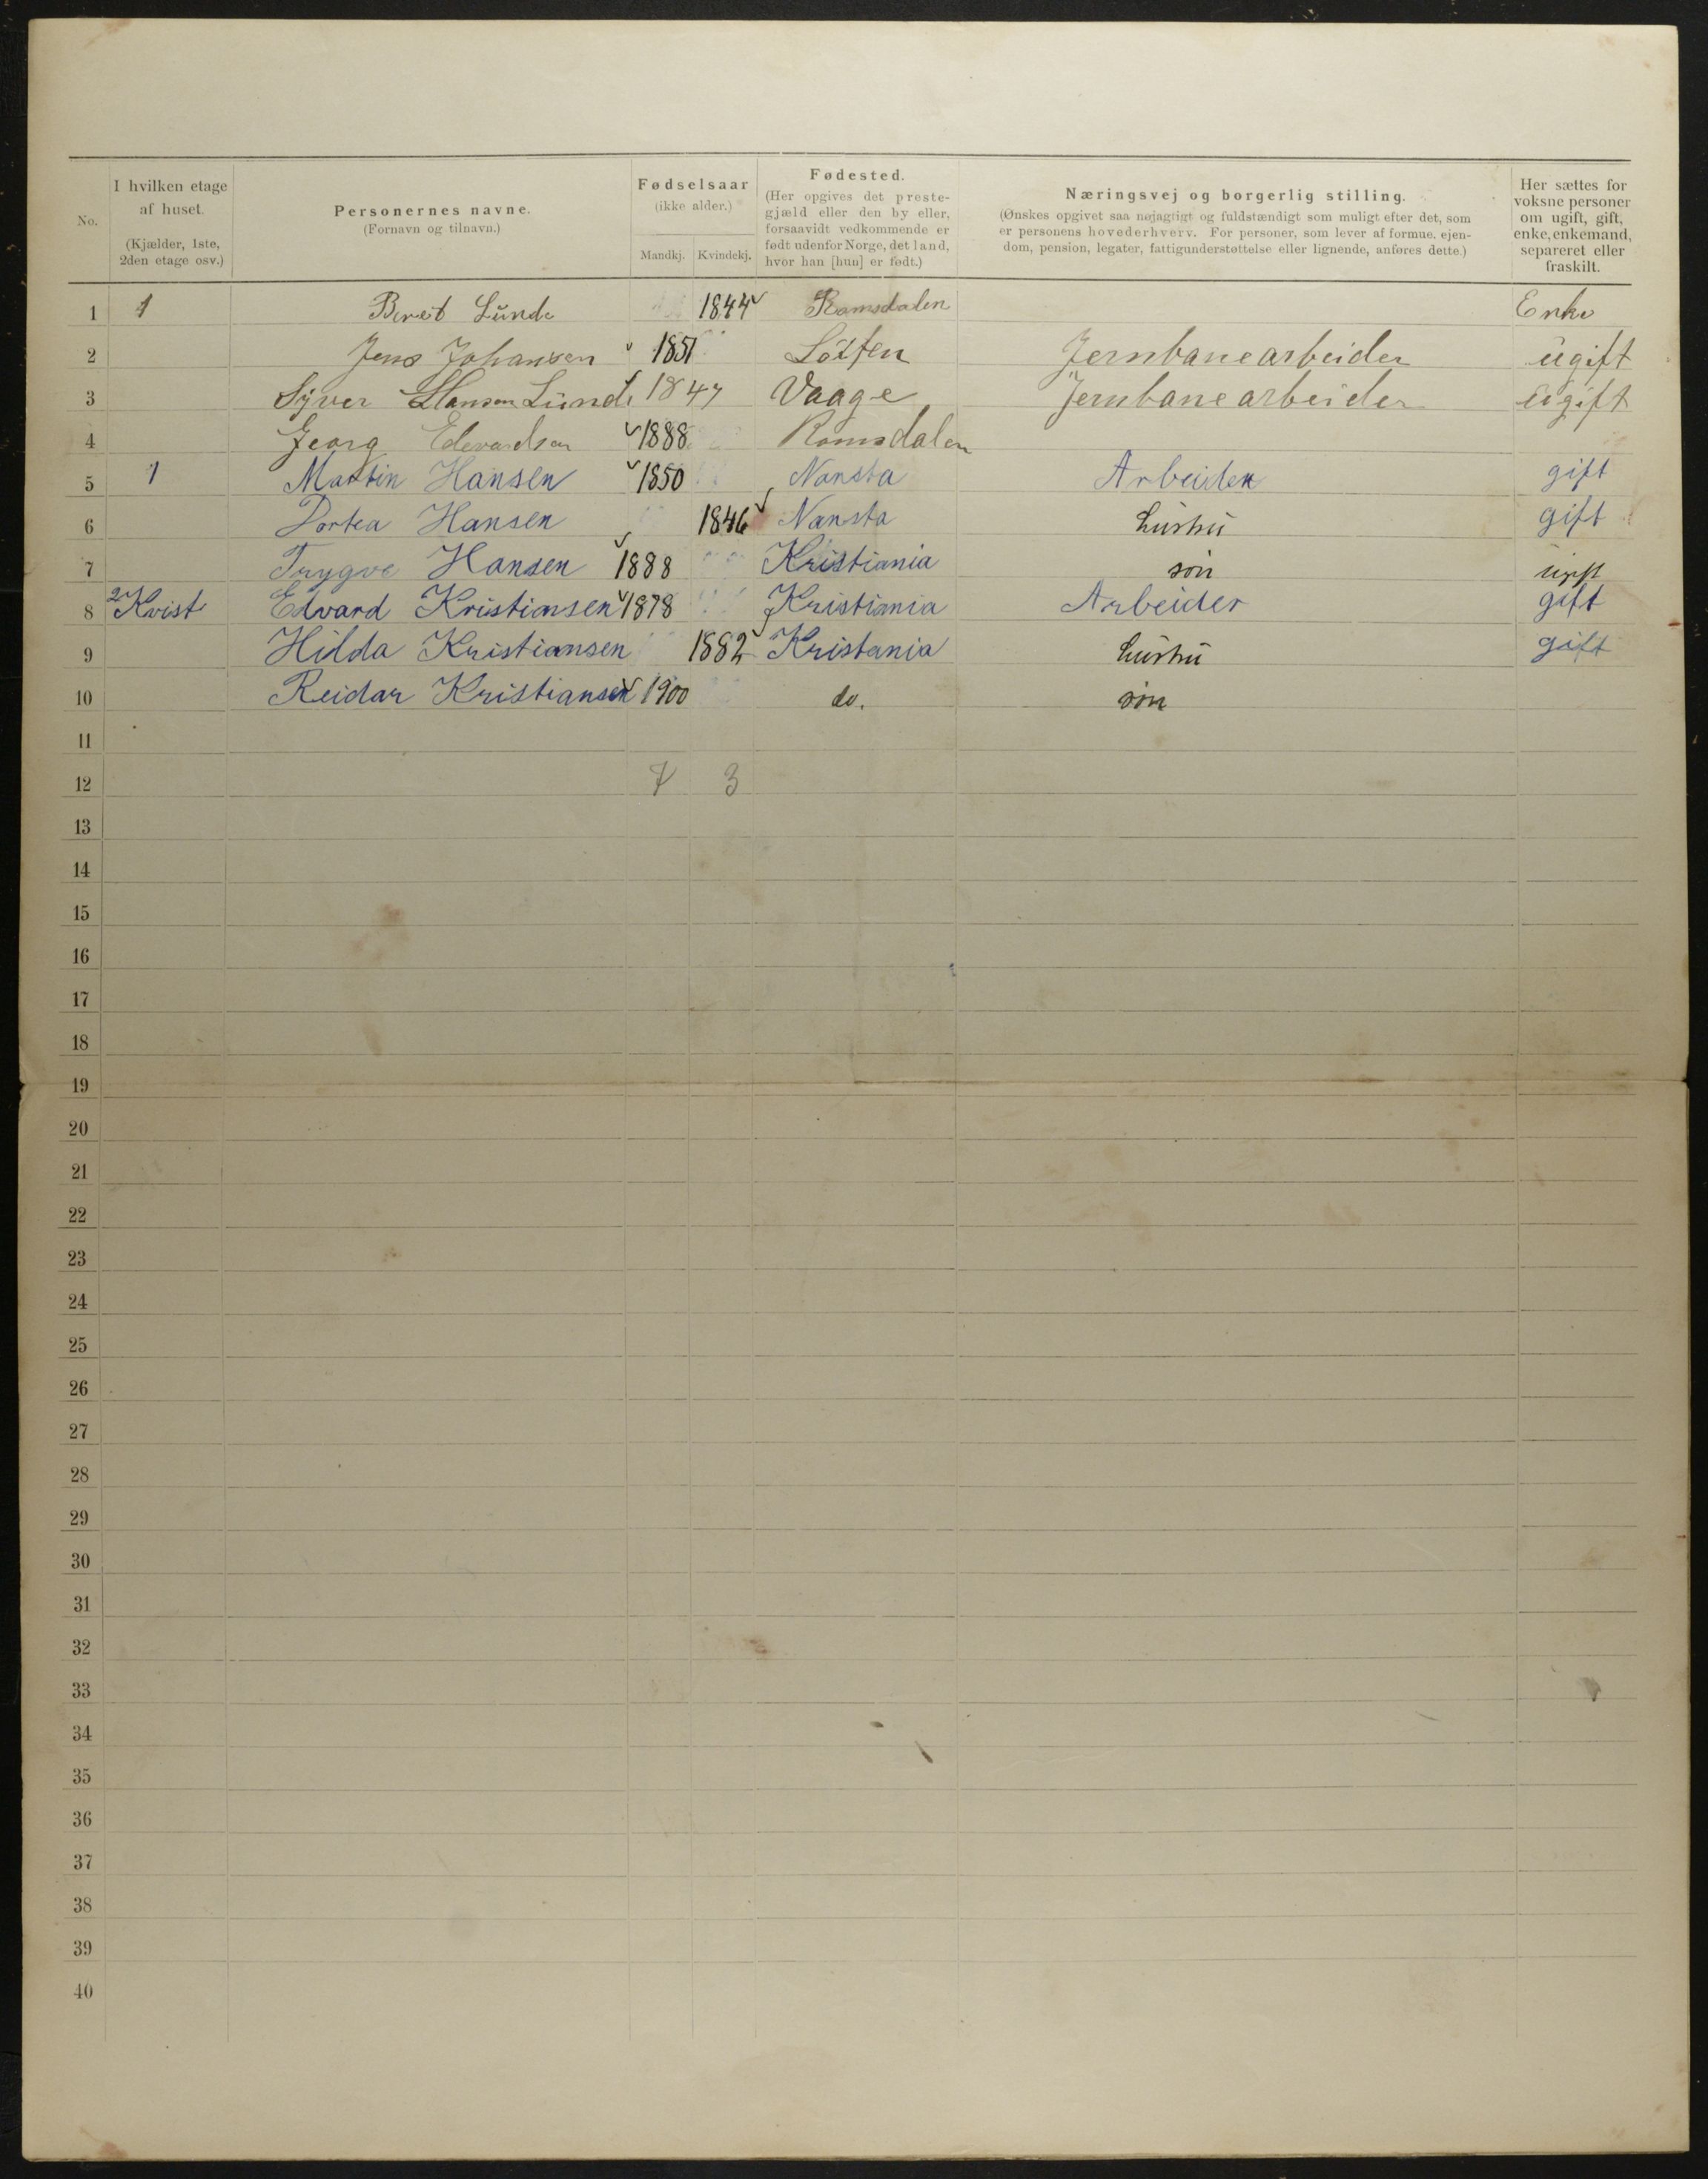 No. I hvilken etage af huset. (Kjælder, 1ste, 2den etage osv.) Personernes navne. (Fornavn og tilnavn.) Fødselsaar (ikke alder.) Mandkj. Kvindekj. Fødested. (Her opgives det prestegjæld eller den by eller, forsaavidt vedkommende er født udenfor Norge, det land, hvor han [hun] er født.) Næringsvej og borgerlig stilling. (Ønskes opgivet saa nøjagtigt og fuldstændigt som muligt efter det, som er personens hovederhverv. For personer, som lever af formue, ejendom, pension, legater, fattigunderstøttelse eller lignende, anføres dette.) Her sættes for voksne personer om ugift, gift, enke, enkemand, separeret eller fraskilt.
1 1 Bereit Lunde 1844 Romsdalen Enke
2 Jens Johansen 1851 Løiten Jernbanearbeider ugift
3 Syver Hansen Lunde 1847 Vaage Jernbanearbeider ugift
4 Georg Edevardsen 1888 Romsdalen
5 1 Martin Hansen 1850 Nansta Arbeider gift
6 Dortea Hansen 1846 Nansta hustru gift
7 Trygve Hansen 1888 Kristiania søn ugift
8 2 Kvist Edvard Kristiansen 1878 Kristiania Arbeider gift
9 Hilda Kristiansen 1882 Kristania hustru gift
10 Reidar Kristiansen 1900 do. søn
11
12 7 3
13
14
15
16
17
18
19
20
21
22
23
24
25
26
27
28
29
30
31
32
33
34
35
36
37
38
39
40